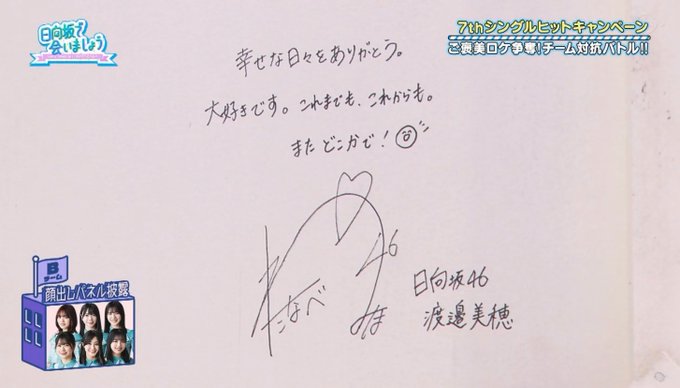 日向坂で
会いましょう
7thシングルヒットキャンペーン
ご褒美ロケ争奪!チーム対抗バトル!!
幸せな日々をありがとう。
大好きです。これまでも、これからも。
またどこかで!
わたなべ
みほ
46
日向坂46
渡邉美穂
B
チーム
顔出しパネル披露